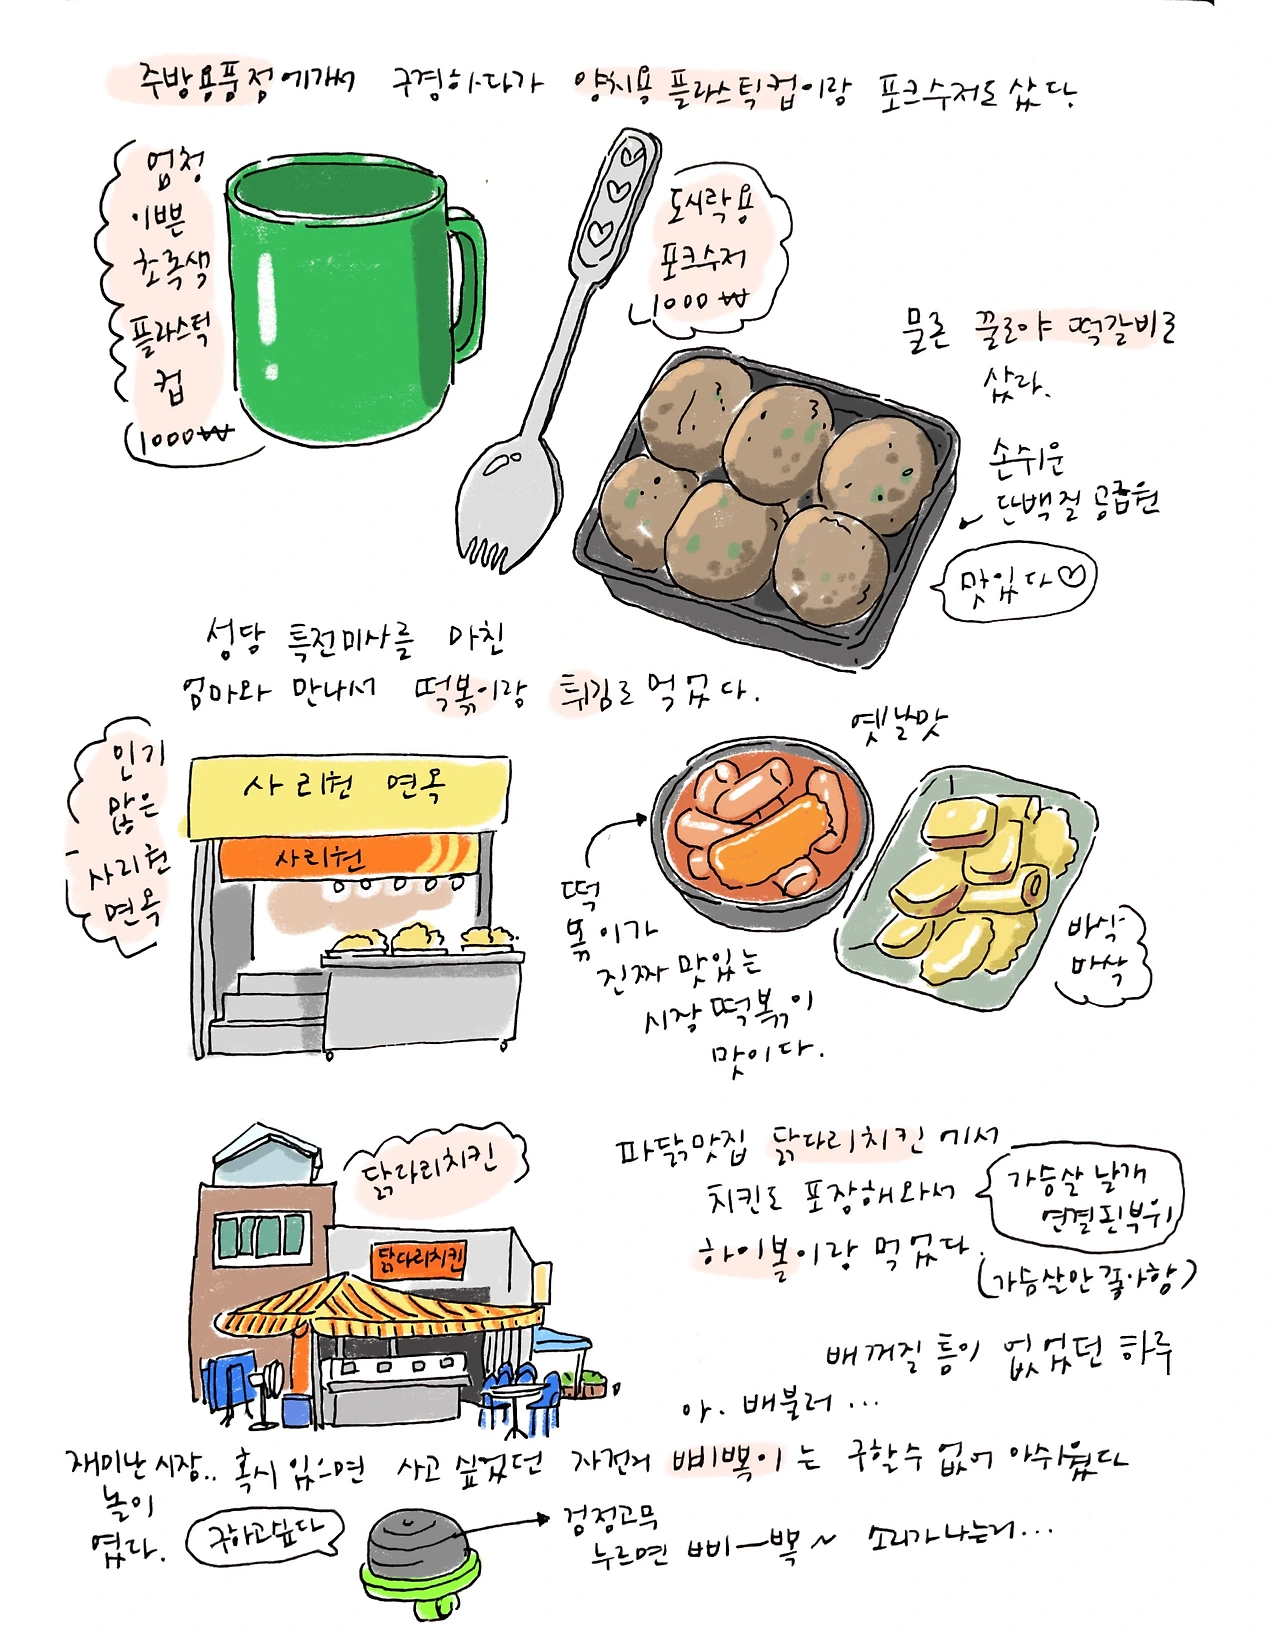 주방용풍정에개서 구경하다가 양치용 플라스틱컵이랑 포크수저도 샀다.
엄청
이쁜
초록색
플라스틱
컵
1000₩
도시락용
포크수저
1000₩
물론 꿀로야 떡갈비도
샀다.
손쉬운
단백질 공급원
맛있다♡
성당 특전미사를 마친
엄마와 만나서 떡볶이랑 튀김도 먹었다.
인기
많은
사리원
면옥
사리원 면옥
사리원
옛날맛
떡
볶이가
진짜 맛있는
시장 떡볶이
맛이다.
바삭
바삭
닭다리치킨
닭다리치킨
파닭맛집 닭다리치킨에서
치킨도 포장해와서
하이볼이랑 먹었다.
가슴살 날개
연결된부위
(가슴살안좋아함)
배꺼질 틈이 없었던 하루
아. 배불러...
재미난 시장.. 혹시 있으면 사고 싶었던 자전거 삐삐뽁이는 구할수 없어 아쉬웠다
놀이
였다.
구하고싶다
검정고무
누르면 삐—뽁~ 소리가 나는거...